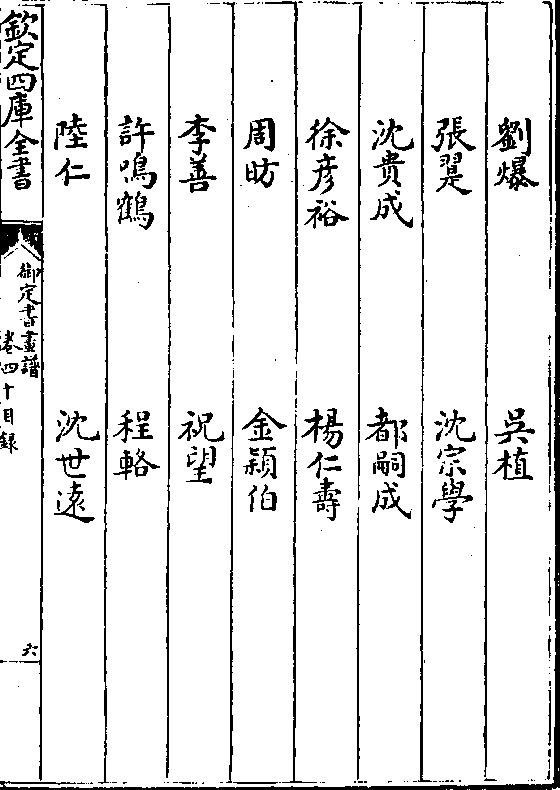 劉爆　吳植
張翨　沈宗學
沈貴成　都嗣成
徐彥裕　楊仁壽
周昉　金穎伯
李善　祝望
許鳴鶴　程輅
陸仁　沈世遠
欽定四庫全書
御定書畫譜
卷四十目錄
六